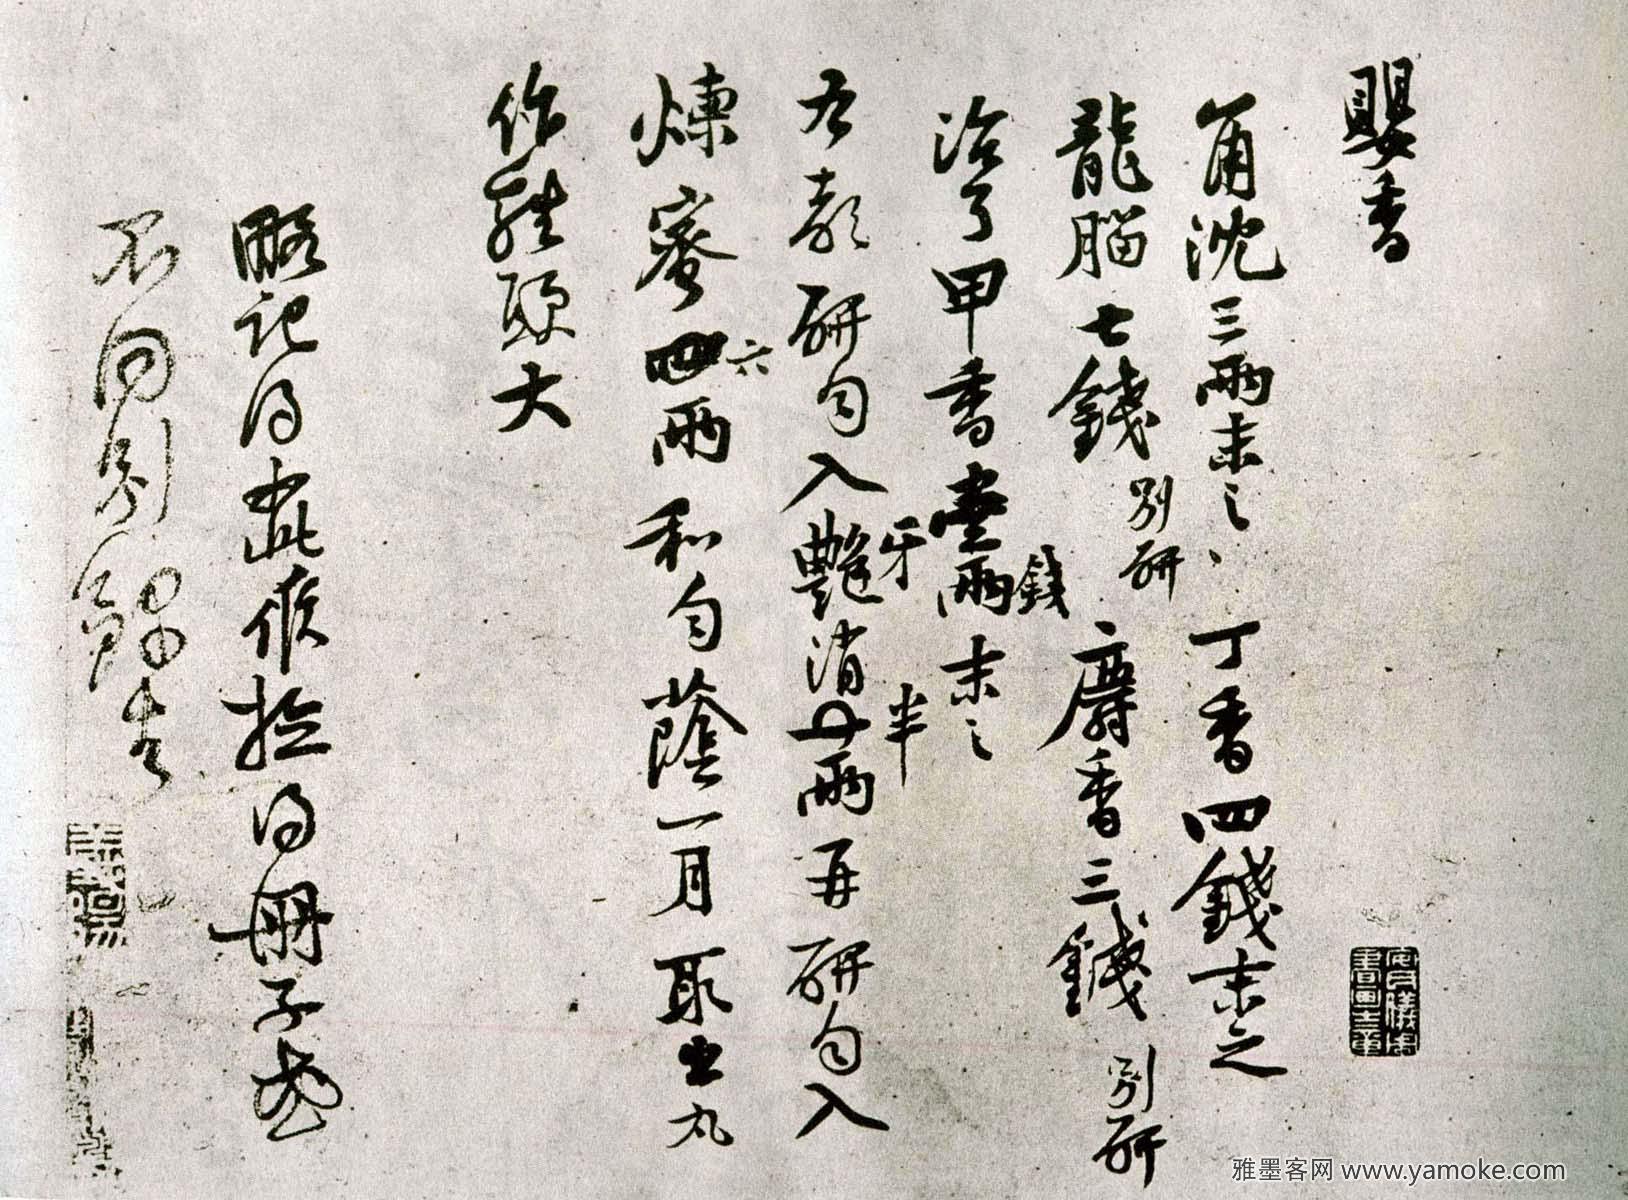 嬰香
角沈三兩末之、丁香四錢末之
龍腦七錢別研麝香三錢別研
治了甲香壹兩錢末之
右都研勻入艷牙消半兩再研勻入
煉蜜四六兩和勻蔭一月取出丸
作雞頭大
略記得此候檢得冊子或
不同別錄去
雅墨客网 www.yamoke.com